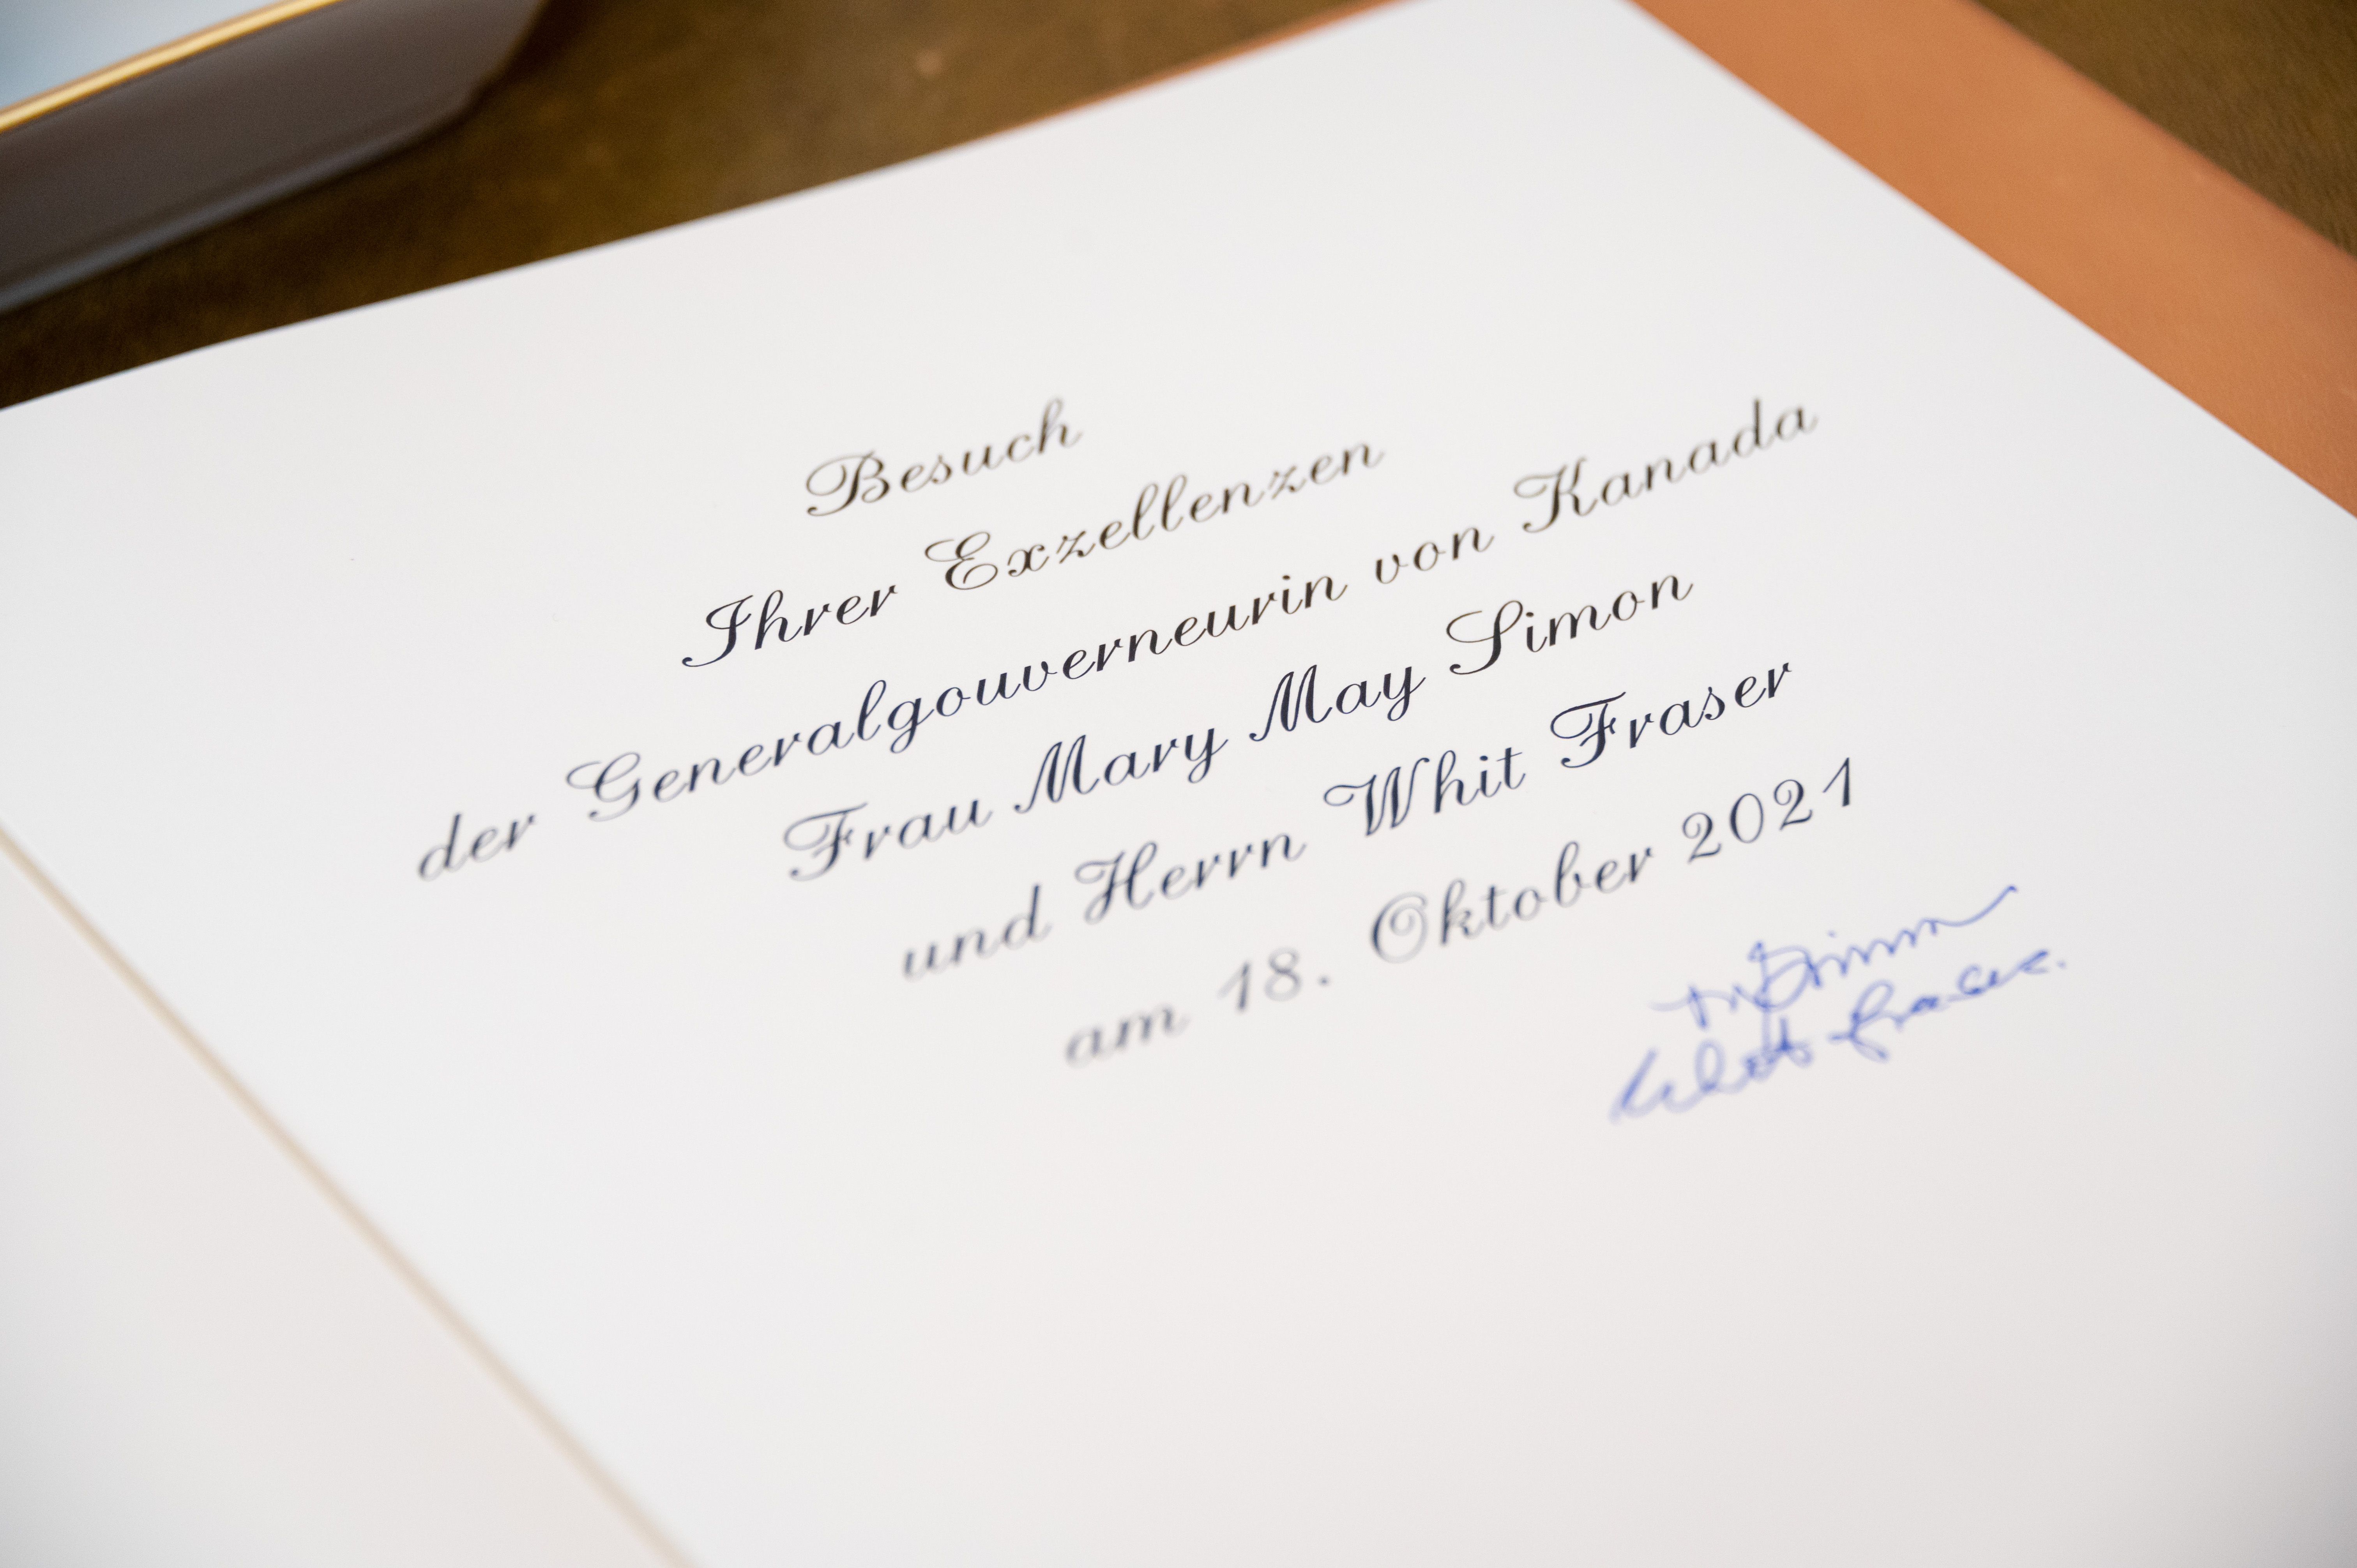 Besuch
Ihrer Exzellenzen
der Generalgouverneurin von Kanada
Frau Mary May Simon
und Herrn Whit Fraser
am 18. Oktober 2021